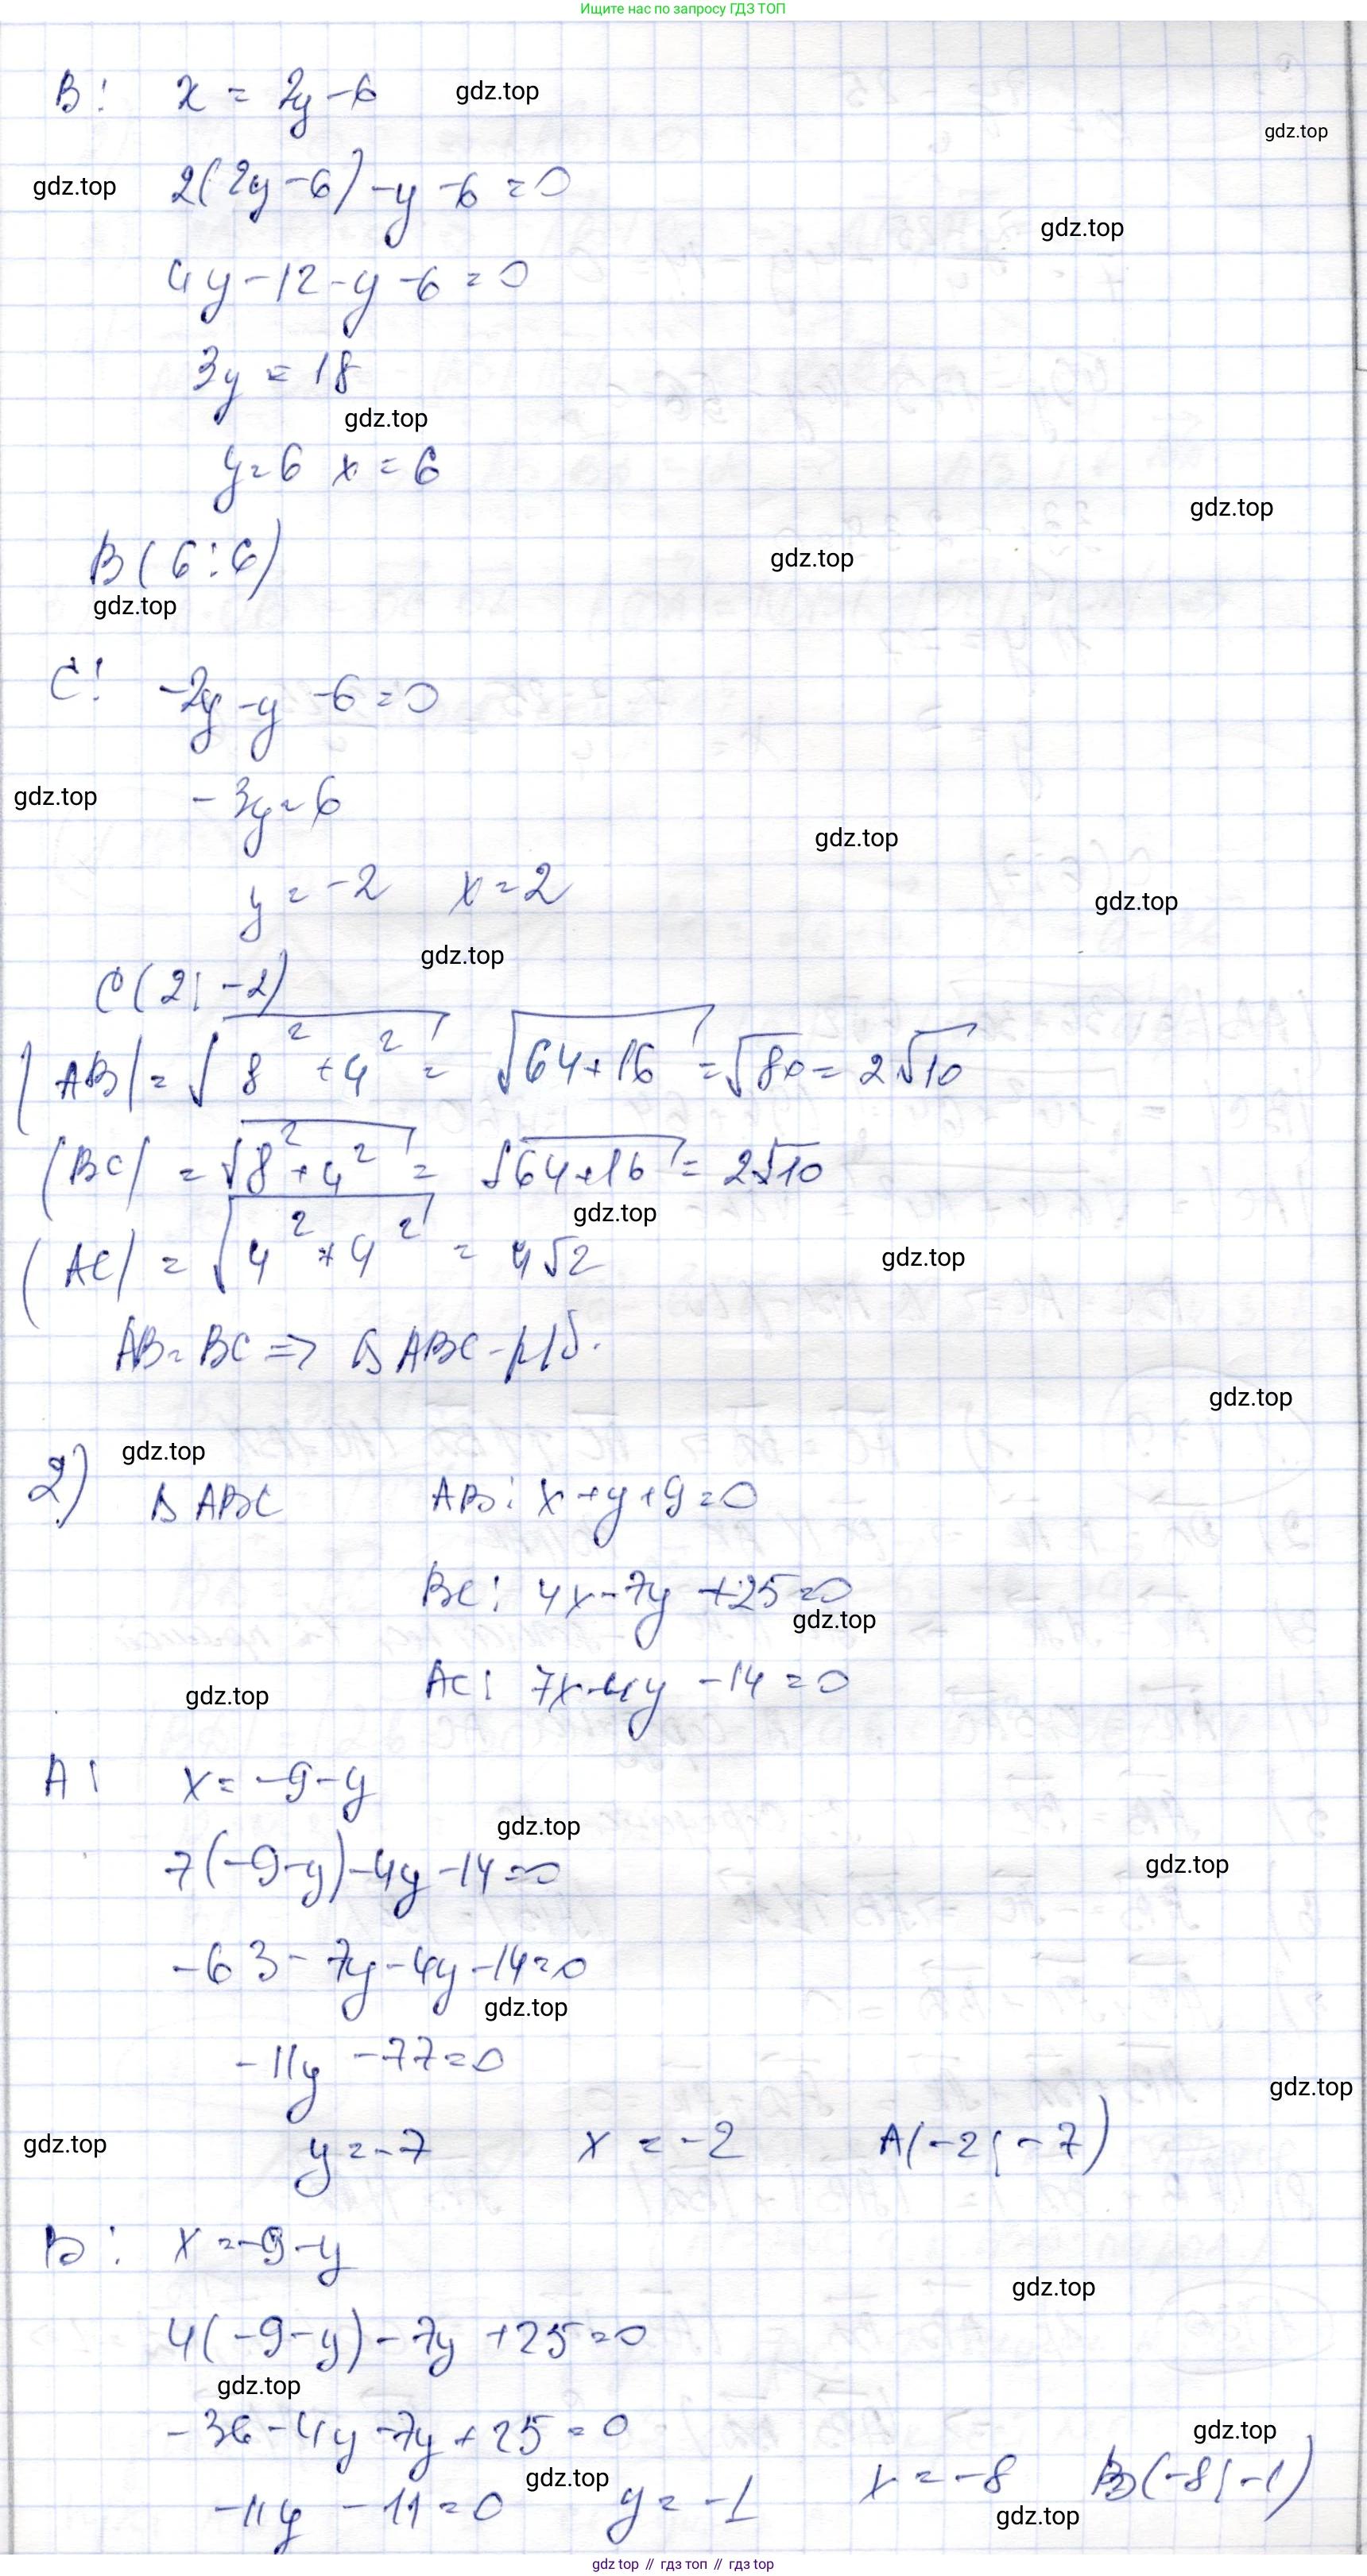 Ищите нас по запросу ГДЗ ТОП
B: x = 2y - 6
gdz.top
gdz.top
gdz.top
2(2y - 6) - y - 6 = 0
gdz.top
4y - 12 - y - 6 = 0
3y = 18
gdz.top
y = 6 x = 6
gdz.top
B(6; 6)
gdz.top
gdz.top
C: -2y - y - 6 = 0
gdz.top
-3y = 6
gdz.top
y = -2 x = 2
gdz.top
gdz.top
C(2; -2)
|AB| = √(8² + 4²) = √(64 + 16) = √80 = 2√10
|BC| = √(8² + 4²) = √(64 + 16) = 2√10
gdz.top
|AC| = √(4² + 4²) = 4√2
gdz.top
AB = BC => Δ ABC - р/б.
gdz.top
gdz.top
2) Δ ABC AB: x + y + 9 = 0
BC: 4x - 7y + 25 = 0
gdz.top
AC: 7x - 4y - 14 = 0
gdz.top
A: x = -9 - y
gdz.top
7(-9 - y) - 4y - 14 = 0
gdz.top
-63 - 7y - 4y - 14 = 0
gdz.top
-11y - 77 = 0
gdz.top
gdz.top
y = -7 x = -2 A(-2; -7)
B: x = -9 - y
gdz.top
4(-9 - y) - 7y + 25 = 0
gdz.top
-36 - 4y - 7y + 25 = 0
gdz.top
gdz.top
-11y - 11 = 0 y = -1 x = -8 B(-8; -1)
gdz.top
gdz top // гдз топ // gdz top